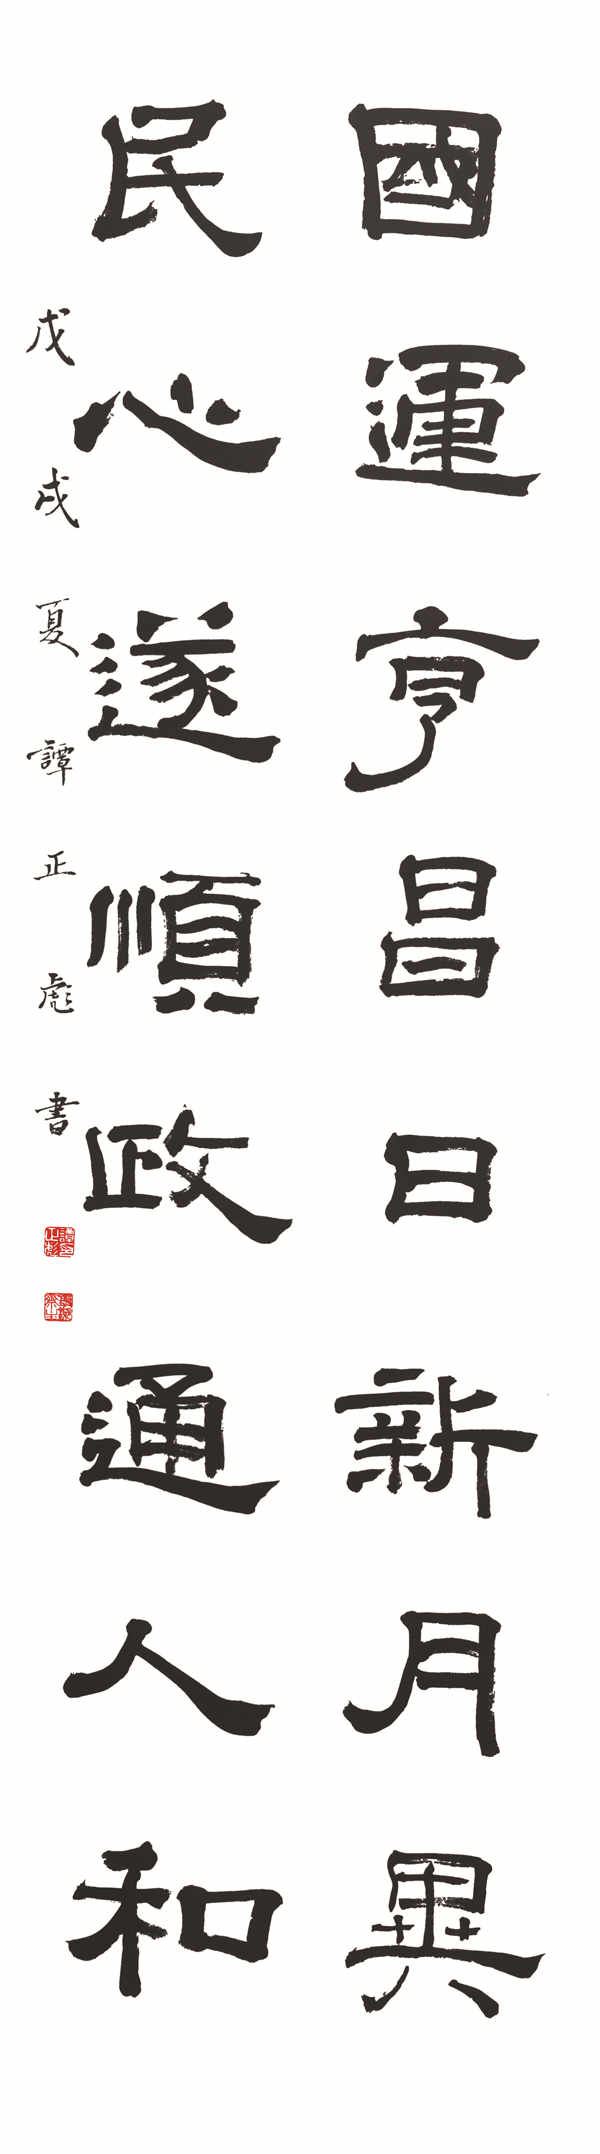 國運亨昌日新月異
民心遂順政通人和
戊戌夏譚正彪書